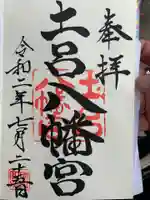 奉拝
土呂八幡宮
令和一年七月二十五日